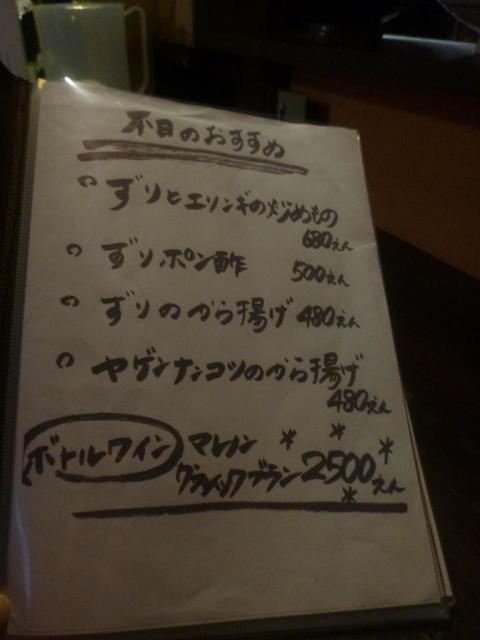 本日のおすすめ
ずりとエリンギの炒めもの
680えん
ずりポン酢 500えん
ずりのから揚げ 480えん
ヤゲンナンコツのから揚げ
480えん
ボトルワイン マレノン
クラシックブラン 2500えん